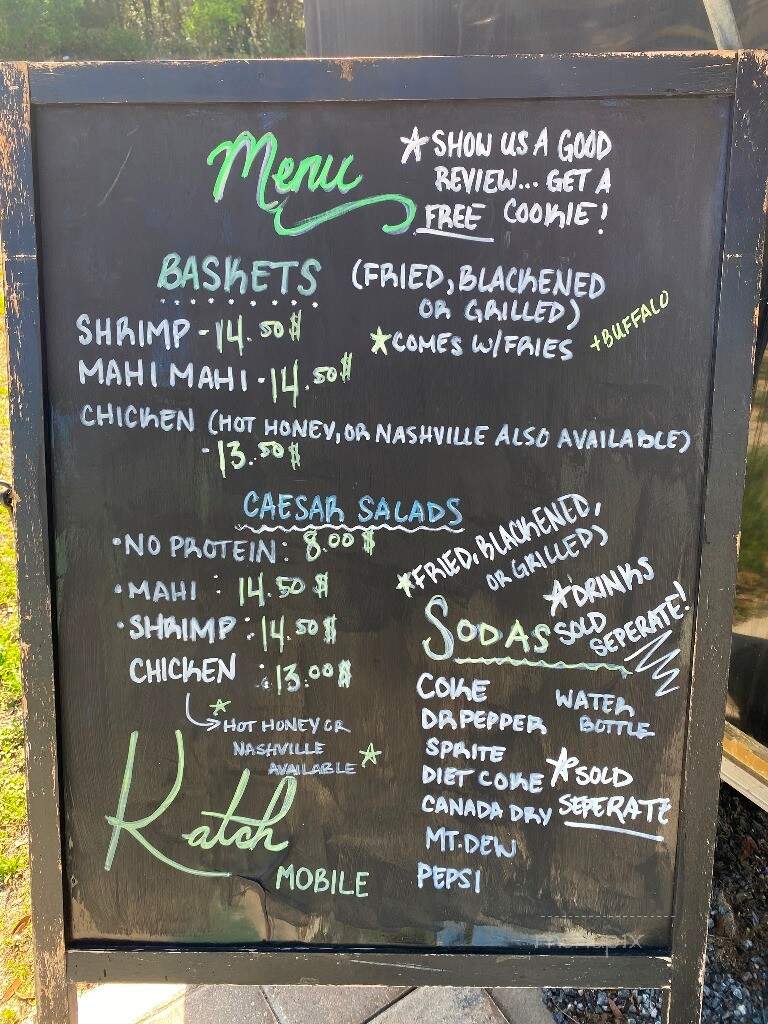 Menu
☆ SHOW US A GOOD
REVIEW... GET A
FREE COOKIE!
BASKETS (FRIED, BLACKENED
OR GRILLED)
SHRIMP - 14.50$
☆ COMES W/FRIES + BUFFALO
MAHI MAHI - 14.50$
CHICKEN (HOT HONEY, OR NASHVILLE ALSO AVAILABLE)
- 13.50$
CAESAR SALADS
• NO PROTEIN: 8.00$
• MAHI : 14.50$
• SHRIMP : 14.50$
CHICKEN : 13.00$
☆ HOT HONEY OR
NASHVILLE
AVAILABLE ☆
☆ FRIED, BLACKENED,
OR GRILLED)
☆ DRINKS
SOLD
SEPERATE!
SODAS
COKE
DR PEPPER
SPRITE
DIET COKE
CANADA DRY
MT. DEW
PEPSI
WATER
BOTTLE
☆ SOLD
SEPERATE
Katch
MOBILE